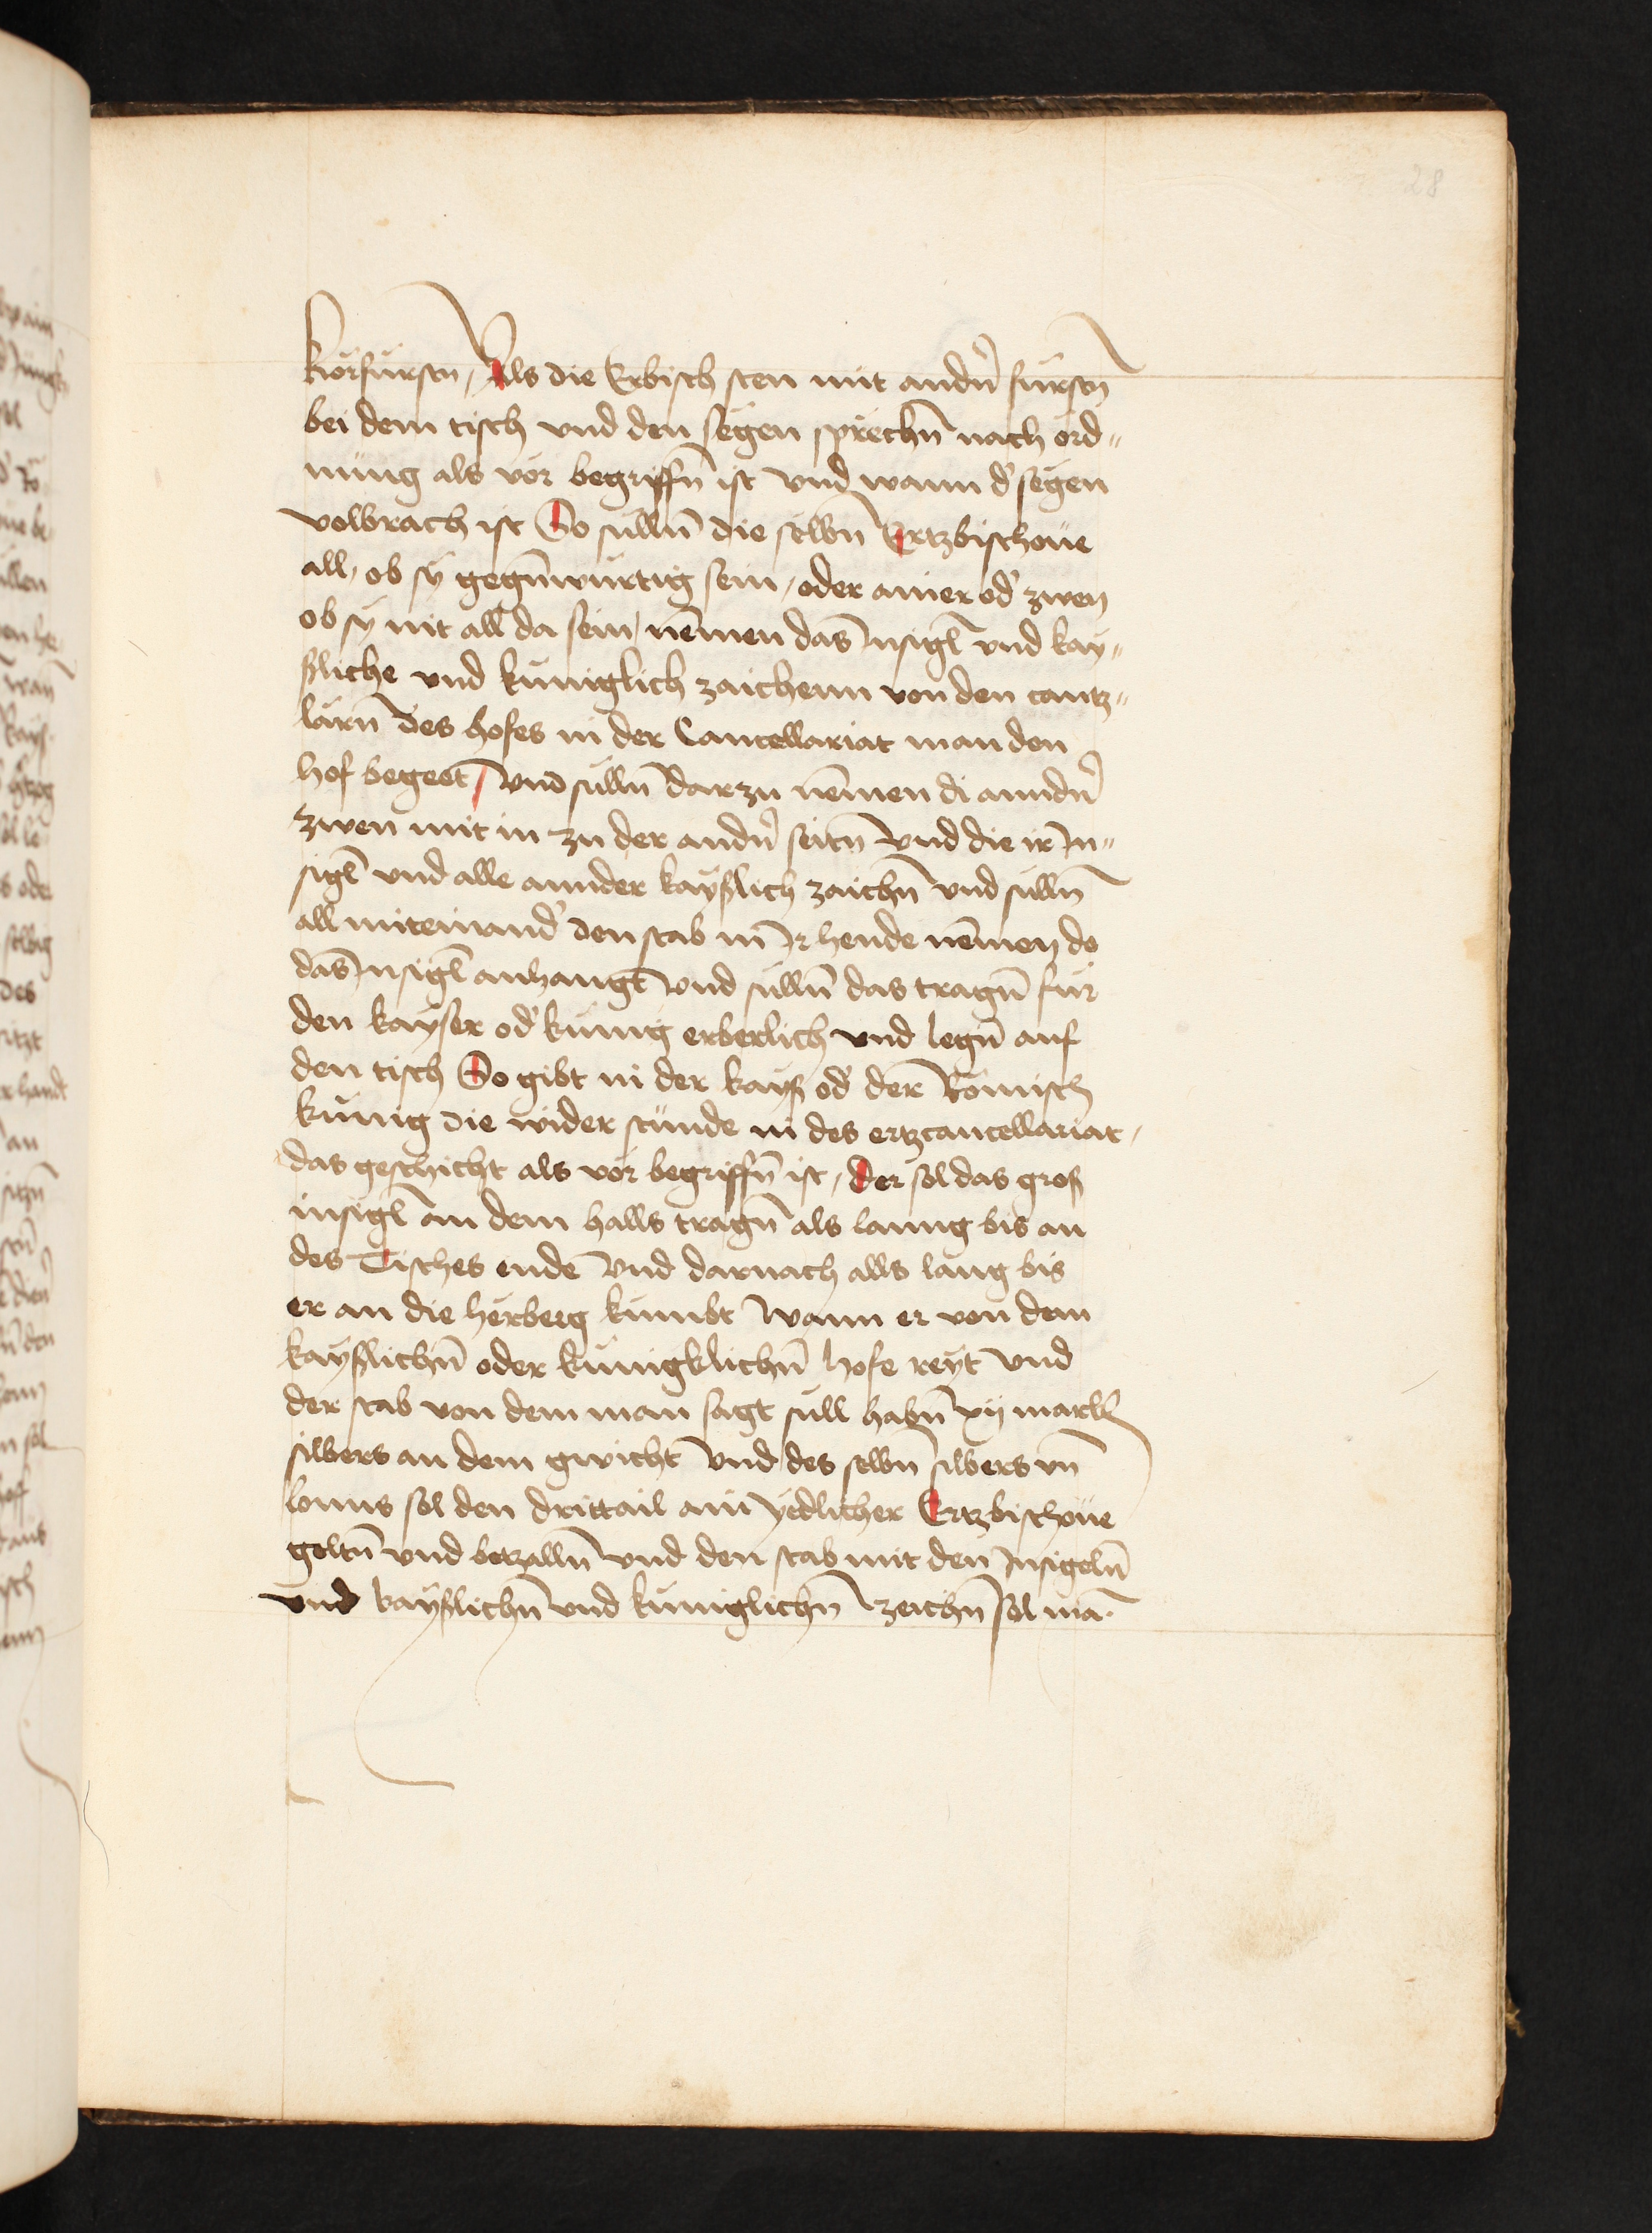 28
körfürstn, Als die Erbisch sten mit andn̄ fürstn
bei dem tisch vnd den segen sprechn̄ nach ord„
nung als vor begriffn̄ ist vnd wann d' segen
volbrach ist So sulln̄ die selbn Ertzbischoue
all, ob sy gegn̄würtig sein, oder ainer od' zwen
ob sy nit all da sein, nēmen das Insigl vnd kay„
ßliche vnd kuniglich zaichenn von den cantz„
lärn̄ des hofes in der Cancellariat man den
hof begeet, vnd sulln̄ darzu nēmen di anndn̄
zwen mit in zu der andn̄ seitn̄ vnd die ir In„
sigl vnd alle annder kayßlich zaichn̄ vnd sulln̄
all miteinand' den stab in Ir hende nēmen do
das Insigl anhangt vnd sulln̄ das tragn̄ für
den kayser od' kunig erberlich vnd legn̄ auf
den tisch So gibt in der kayß od' der Römisch
kunig die wider stünde in des ertzcancellariat,
das geschicht als vor begriffn̄ ist, der sol das groß
insigl an dem halls tragn̄ als lanng bis an
des Tisches ende vnd darnach alls lang bis
er an die herberg kumbt wann er von dem
kayßlichn̄ oder kunigklichn̄ hofe reyt vnd
der stab von dem man sagt sull habn̄ xij markh
silbers an dem gwicht vnd des selbn silbers vn̄
lonns sol den drittail ain yedlicher Ertzbischoue
geltn̄ vnd betzalln̄ vnd den stab mit den Insigeln̄
vnd kayßlichn̄ vnd kuniglichn̄ zeichn̄ sol ma.